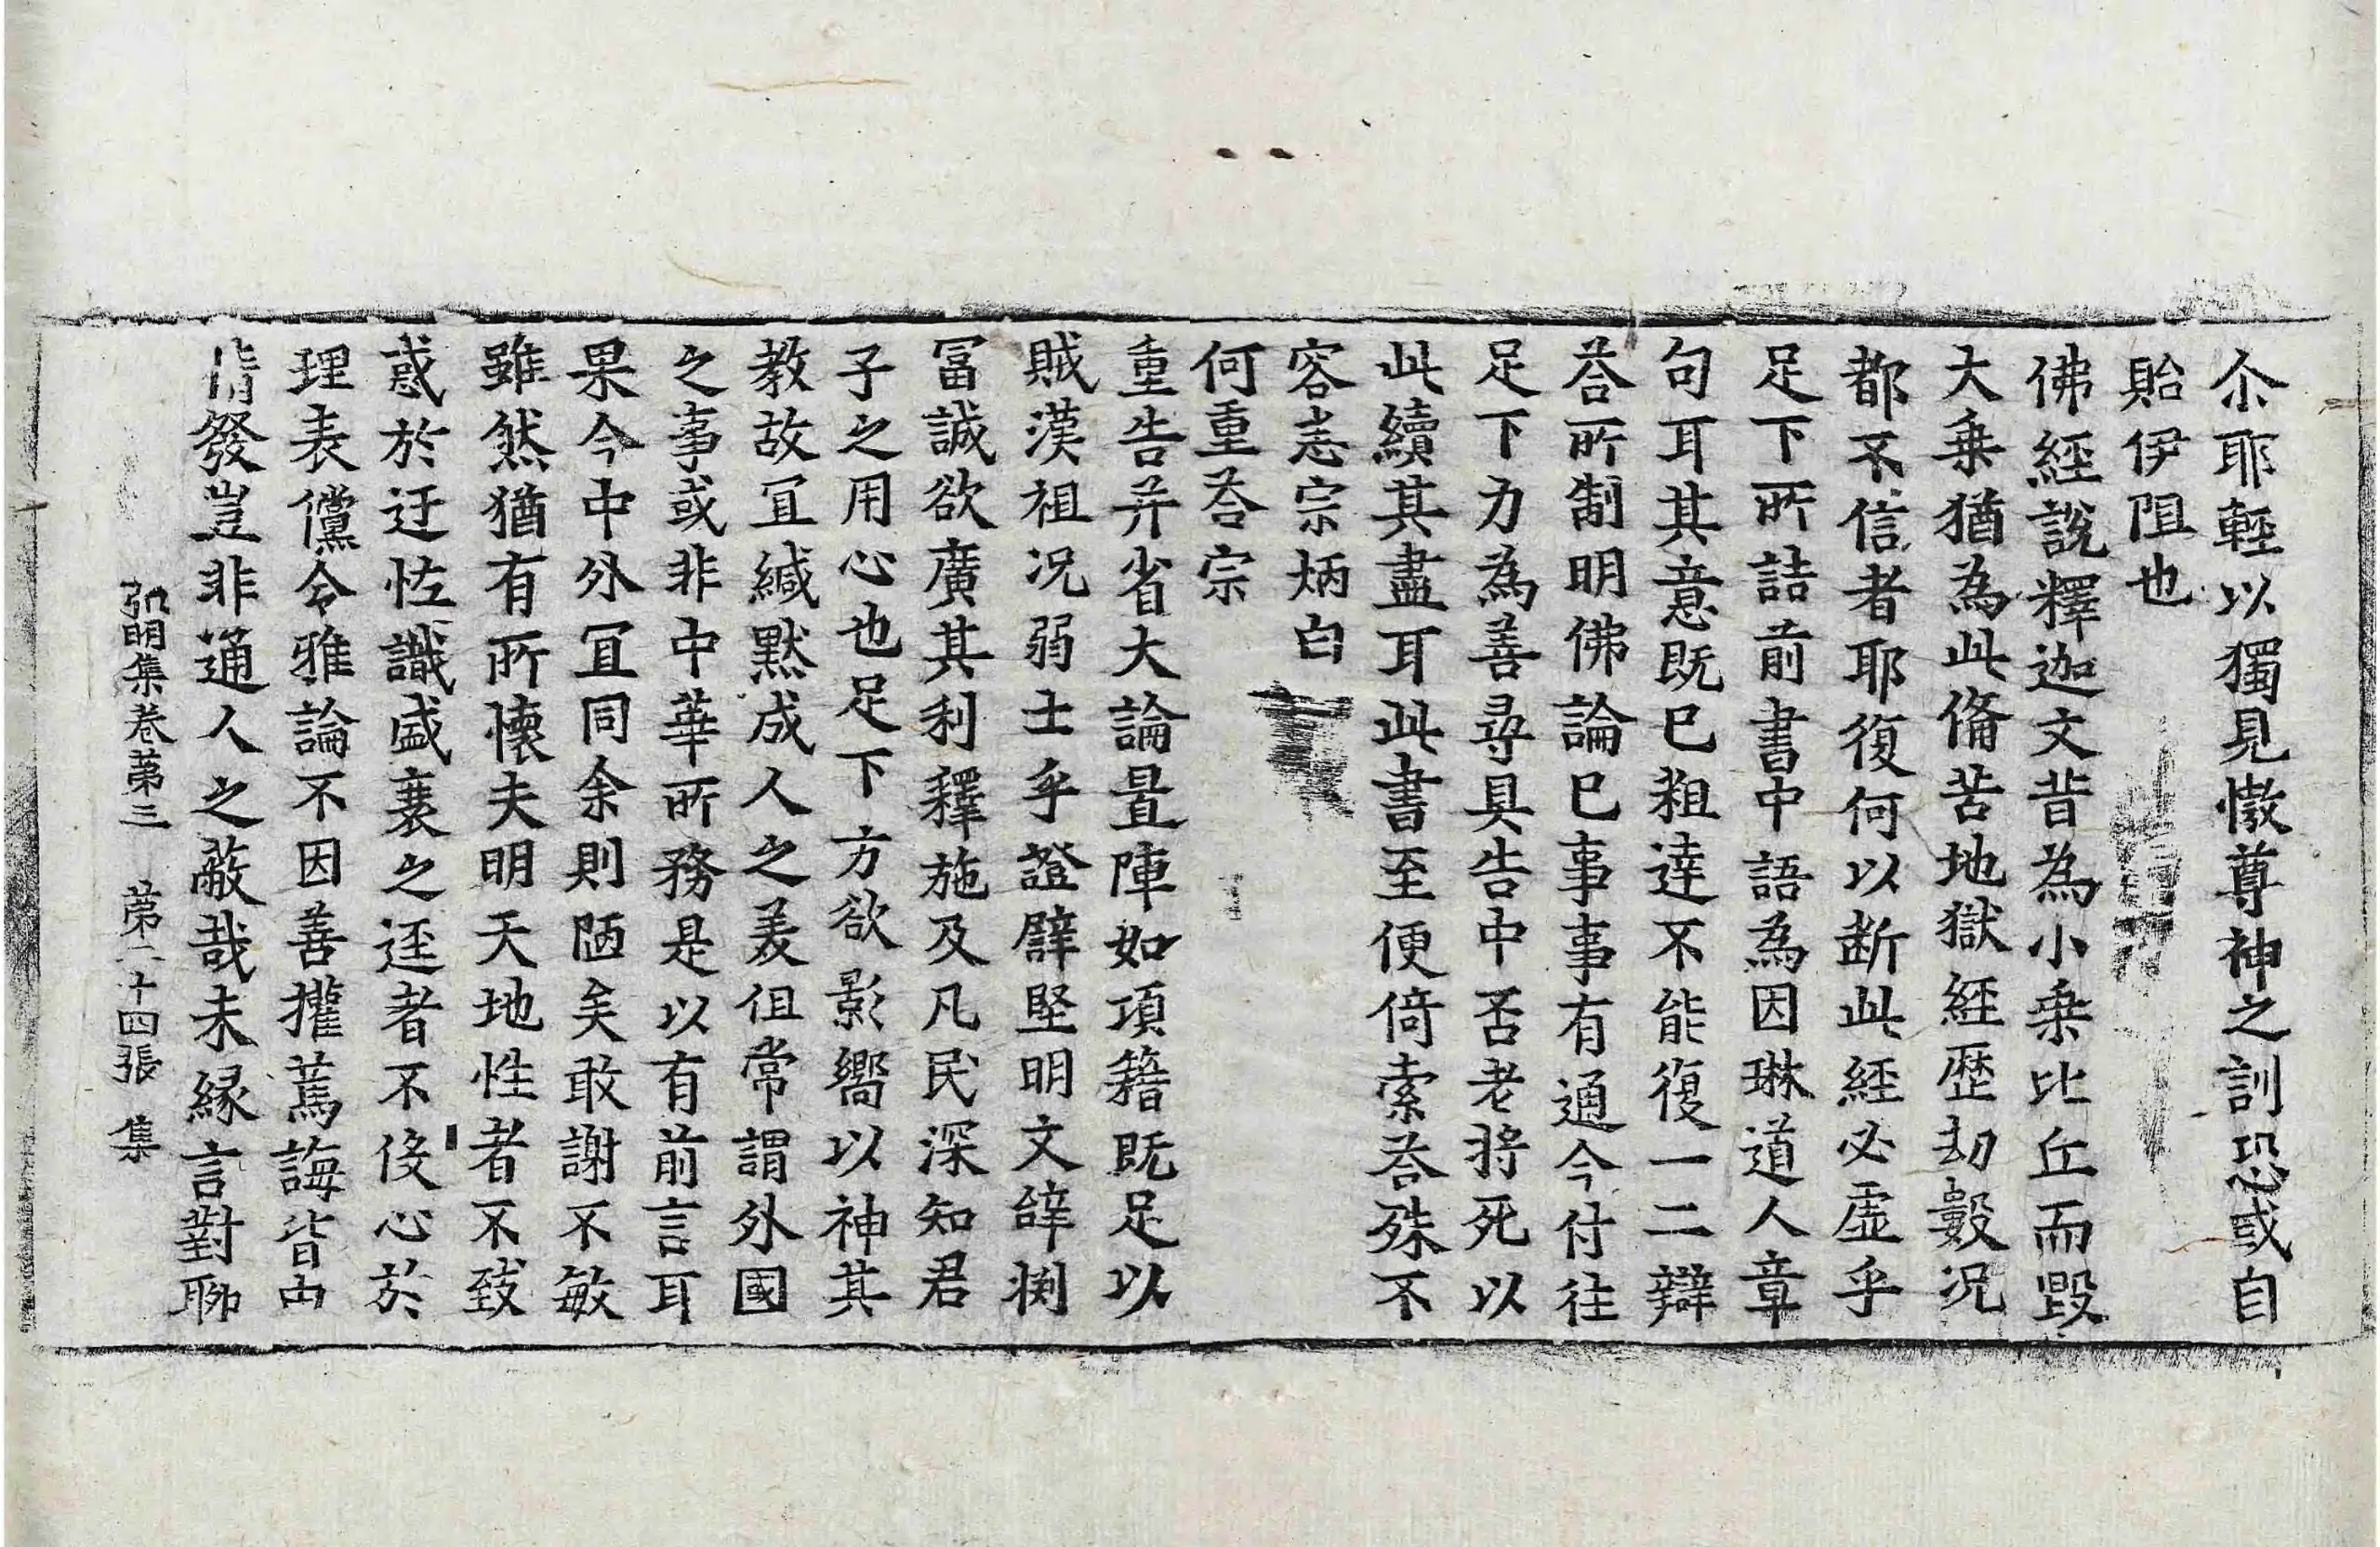 尒耶輕以獨見慠尊神之訓恐或自
貽伊阻也
佛經說釋迦文昔為小乗比丘而毀
大乗猶為此俻苦地獄經歷劫數况
都不信者耶復何以断此經必虛乎
足下所詰前書中語為因琳道人章
句耳其意既已粗達不能復一二辯
荅所制明佛論已事事有通今付往
足下力為善尋具告中否老將死以
此續其盡耳此書至便倚索荅殊不
容悉宗炳白
何重荅宗
重告并省大論置陣如項籍既足以
賊漢祖况弱士乎證譬堅明文辝渕
冨誠欲廣其利釋施及凡民深知君
子之用心也足下方欲影嚮以神其
教故冝緘默成人之美但常謂外國
之事或非中華所務是以有前言耳
果今中外冝同余則陋矣敢謝不敏
雖然猶有所懷夫明天地性者不致
惑於迂恠識盛衰之逕者不伇心於
理表儻令雅論不因善攉蔫誨皆由
情發豈非通人之蔽哉未縁言對聊
弘明集卷苐三　苐二十四張　集